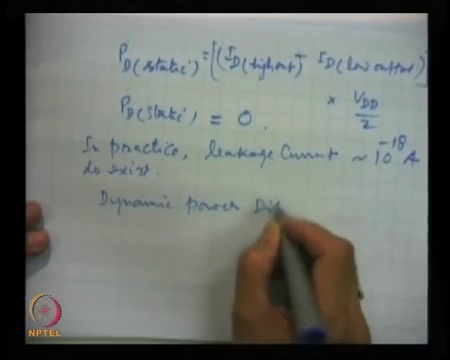 P_D(static) = [(I_D(high out) + I_D(low output)]
× V_DD/2
P_D(static) = 0.
In practice, leakage current ~ 10^-18 A
do exist.
Dynamic power Di
NPTEL